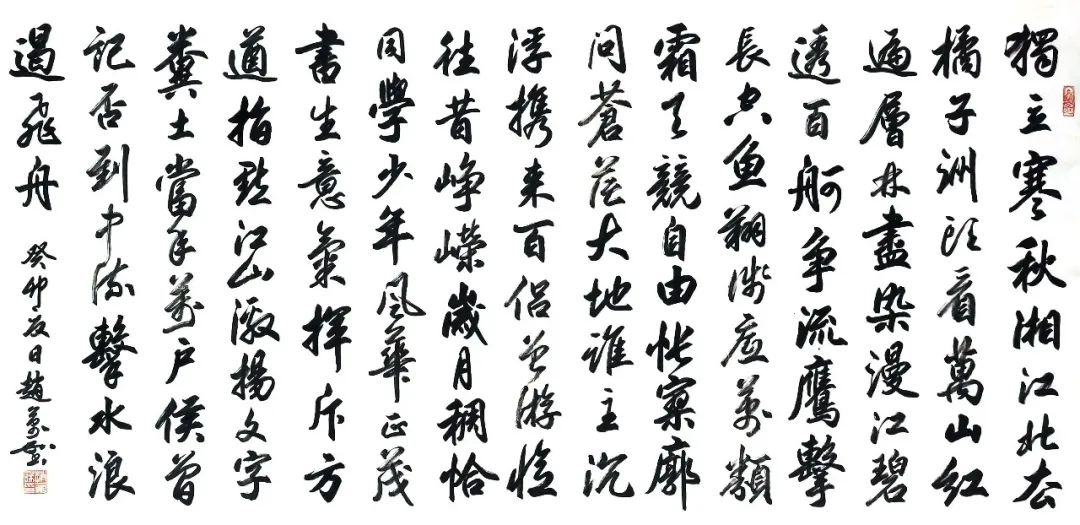 獨立寒秋湘江北去
橘子洲頭看萬山紅
遍層林盡染漫江碧
透百舸争流鷹擊
長空魚翔浅底萬類
霜天競自由悵寥廓
問蒼茫大地誰主沉
浮携来百侣曾游憶
往昔峥嶸歲月稠恰
同學少年風華正茂
書生意氣揮斥方
遒指點江山激揚文字
糞土當年萬户侯曾
記否到中流擊水浪
遏飛舟
癸卯夏日趙萬